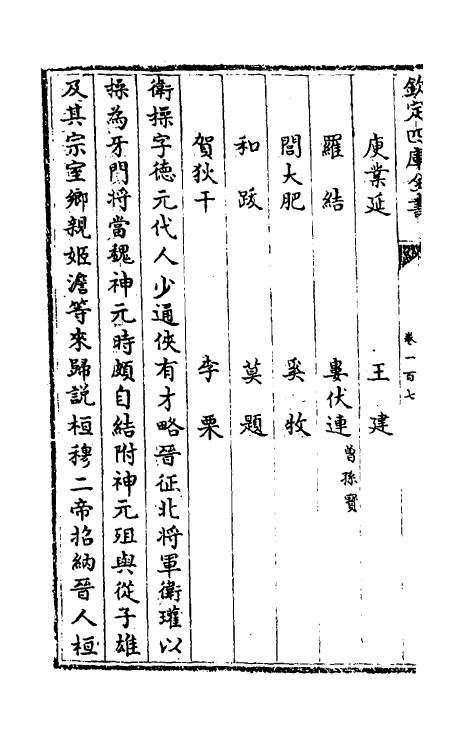 欽定四庫全書
卷一百七
庾業延　王建
羅結　婁伏連曾孫寳
閭大肥　奚牧
和跋　莫題
賀狄干　李栗
衛操字徳元代人少通俠有才略晉征北將軍衛瓘以
操為牙門將當魏神元時頗自結附神元殂與從子雄
及其宗室鄉親姬澹等來歸説桓穆二帝招納晉人桓